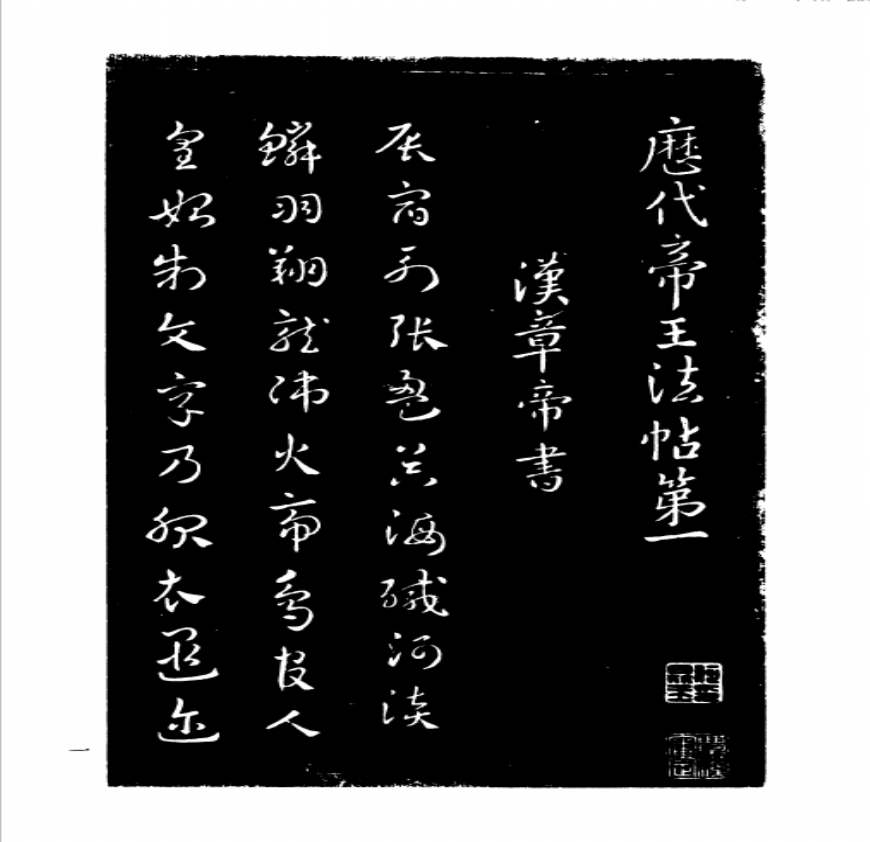 歷代帝王法帖第一
漢章帝書
辰宿列張盈昃海鹹河淡
鱗羽翔龍師火帝鳥官人
皇始制文字乃服衣遐迩
一